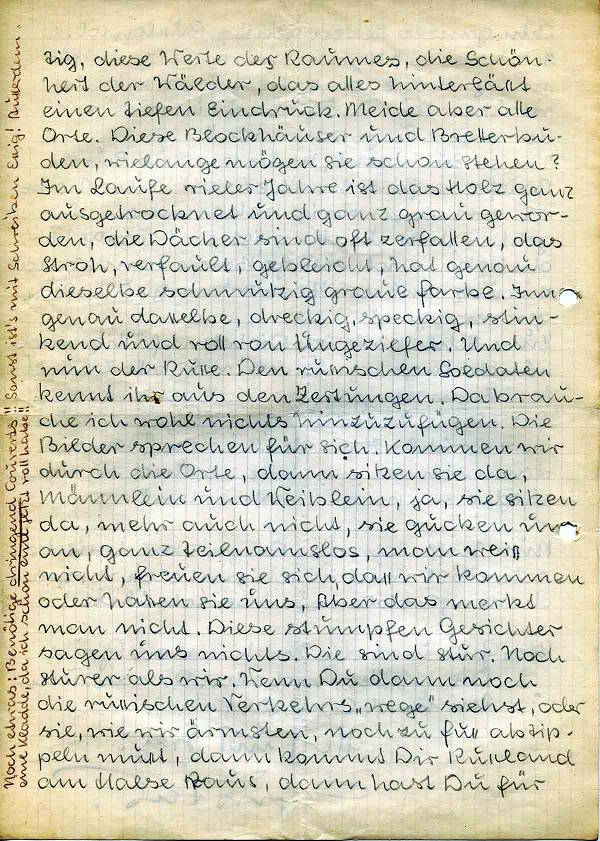 tig, diese Werte des Raumes, die Schön-
heit der Wälder, das alles hinterläßt
einen tiefen Eindruck. Meide aber alle
Orte. Diese Blockhäuser und Bretterbu-
den, wielange mögen sie schon stehen?
Im Laufe vieler Jahre ist das Holz ganz
ausgetrocknet und ganz grau gewor-
den, die Dächer sind oft zerfallen, das
Stroh, verfault, gebleicht, hat genau
dieselbe schmutzig graue Farbe. Innen
genau dasselbe, dreckig, speckig, stin-
kend und voll von Ungeziefer. Und
nun der Russe. Den russischen Soldaten
kennt ihr aus den Zeitungen. Da brau-
che ich wohl nichts hinzuzufügen. Die
Bilder sprechen für sich. Kommen wir
durch die Orte, dann sitzen sie da,
Männlein und Weiblein, ja, sie sitzen
da, mehr auch nicht, sie gucken uns
an, ganz teilnamslos, man weiß
nicht, freuen sie sich, dass wir kommen
oder hassen sie uns, Aber das merkt
man nicht. Diese stumpfen Gesichter
sagen uns nichts. Die sind stur. Noch
sturer als wir. Wenn Du dann noch
die russischen Verkehrs„wege" siehst, oder
sie, wie wir ärmsten, noch zu fuss abtip-
peln musst, dann kommt Dir Russland
am Halse Raus, dann hast Du für
Noch etwas: Benötige dringend Couverts!! Sonst ist's mit Schreiben Essig! Außerdem
eine Kladde, da ich schon eine jetzt voll habe!!